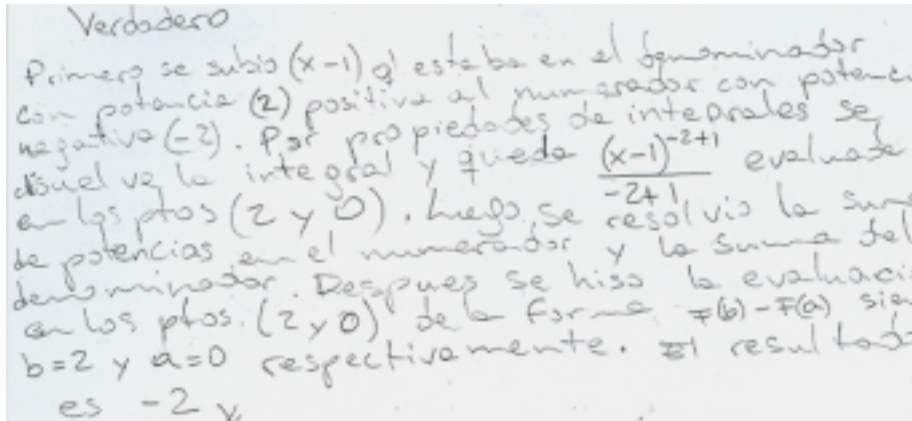 Verdadero
Primero se subio (x-1) q' estaba en el denominador
con potencia (2) positiva al numerador con potenci
negativa (-2). Por propiedades de integrales se
disuelve la integral y queda (x-1)^{-2+1} / -2+1 evaluada
en los ptos (2 y 0). Luego se resolvio la suma
de potencias en el numerador y la suma del
denominador. Despues se hiso la evaluaci
en los ptos. (2 y 0) de la forma F(b)-F(a) sien
b=2 y a=0 respectivamente. El resultado
es -2